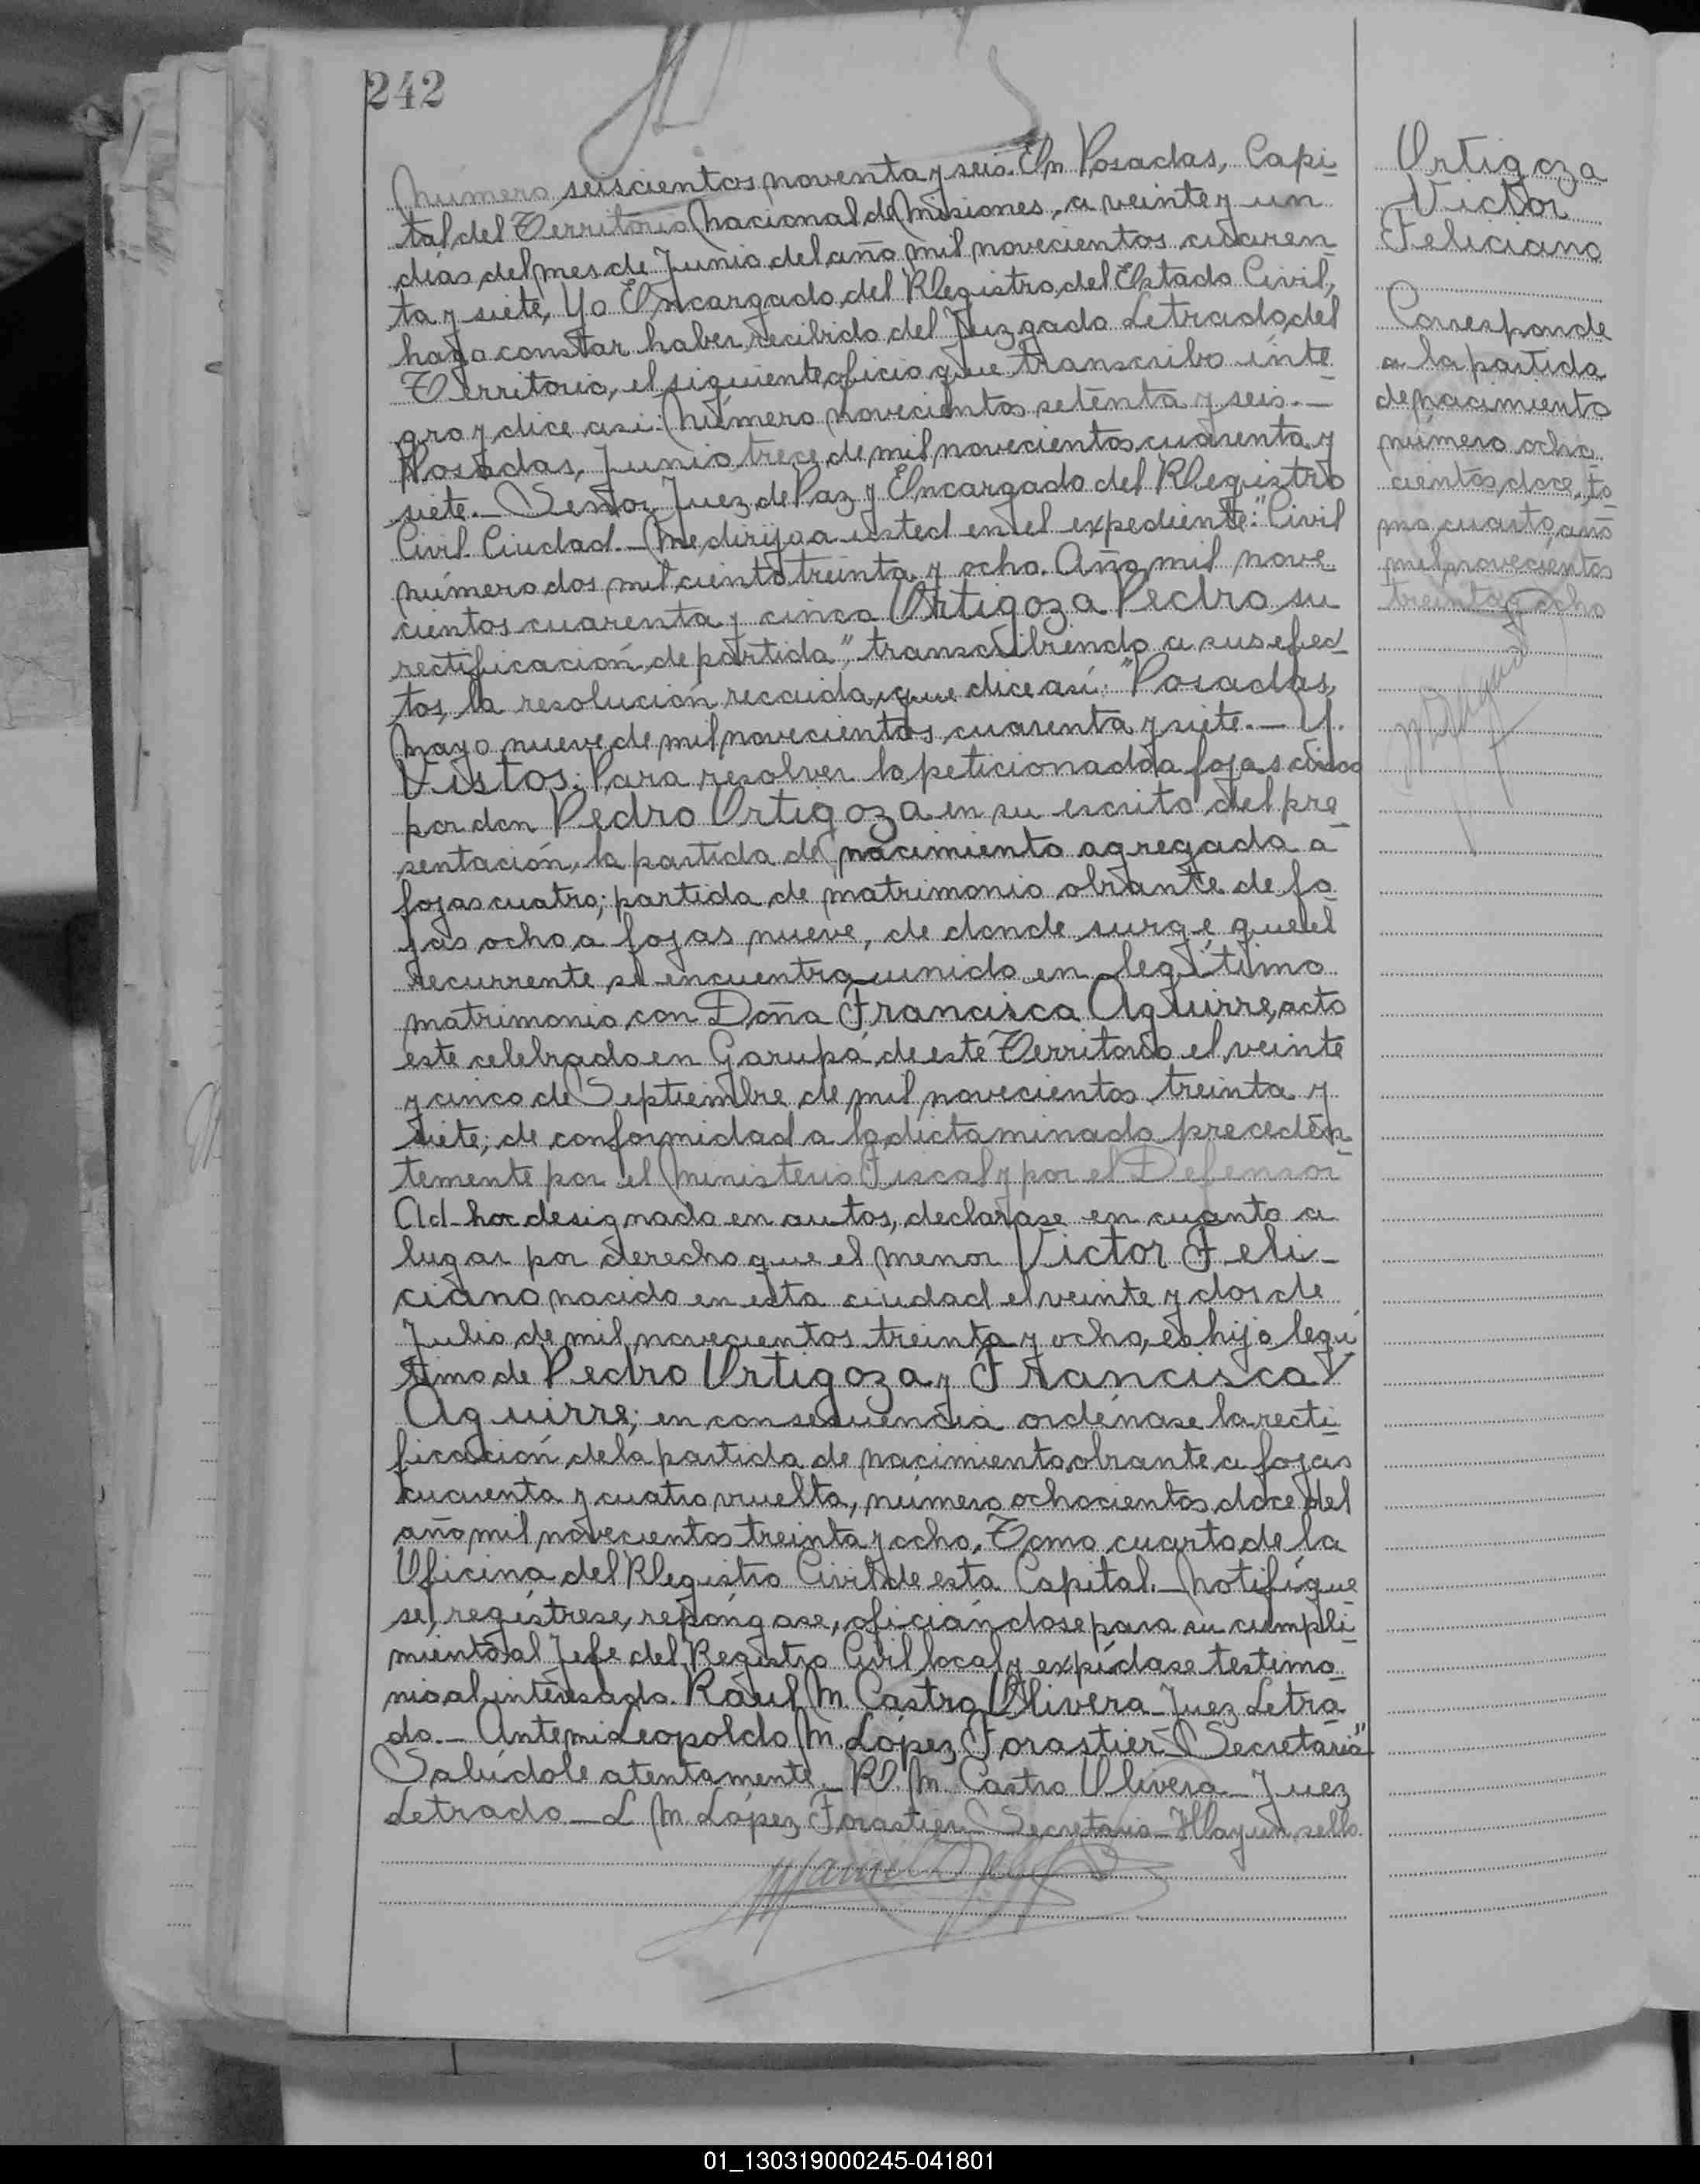 242
Número seiscientos noventa y seis. En Posadas, Capi-
tal del Territorio Nacional de Misiones, a veinte y un
días del mes de Junio del año mil novecientos cuaren-
ta y siete, Yo Encargado del Registro del Estado Civil,
hago constar haber recibido del Juzgado Letrado del
Territorio, el siguiente oficio que transcribo ínte-
gro y dice así: Número novecientos setenta y seis.-
Posadas, Junio trece de mil novecientos cuarenta y
siete.- Señor Juez de Paz y Encargado del Registro
Civil. Ciudad.- Me dirijo a usted en el expediente: "Civil
número dos mil ciento treinta y ocho. Año mil nove-
cientos cuarenta y cinco Ortigoza Pedro su
rectificación de partida", transcribiendo a sus efec-
tos, la resolución recaida, que dice así: "Posadas,
Mayo nueve de mil novecientos cuarenta y siete.- Y.
Vistos: Para resolver lo peticionado a fojas cinco
por don Pedro Ortigoza en su escrito del pre-
sentación, la partida de nacimiento agregada a
fojas cuatro; partida de matrimonio obrante de fo-
jas ocho a fojas nueve, de donde surge que el
recurrente se encuentra unido en legítimo
matrimonio con Doña Francisca Aguirre, acto
este celebrado en Garupá de este Territorio el veinte
y cinco de Septiembre de mil novecientos treinta y
siete; de conformidad a lo dictaminado preceden-
temente por el Ministerio Fiscal y por el Defensor
Ad-hoc designado en autos, declarase en cuanto a
lugar por derecho que el menor Victor Feli-
ciano nacido en esta ciudad el veinte y dos de
Julio de mil novecientos treinta y ocho, es hijo legí-
timo de Pedro Ortigoza y Francisca
Aguirre; en consecuencia ordénase la recti-
ficación de la partida de nacimiento obrante a fojas
cuarenta y cuatro vuelta, número ochocientos doce del
año mil novecientos treinta y ocho, Tomo cuarto de la
Oficina del Registro Civil de esta Capital.- Notifíque-
se, regístrese, repóngase, oficiándose para su cumpli-
miento al Jefe del Registro Civil local y expídase testimo-
nio al interesado. Raúl M. Castro Olivera - Juez Letra-
do.- Ante mi Leopoldo M. López Forastier - Secretario"
Salúdole atentamente.- R. M. Castro Olivera - Juez
Letrado - L. M. López Forastier - Secretario - Hay un sello.
Ortigoza
Victor
Feliciano
Corresponde
a la partida
de nacimiento
número ocho-
cientos doce, to-
mo cuarto, año
mil novecientos
treinta y ocho
01_130319000245-041801